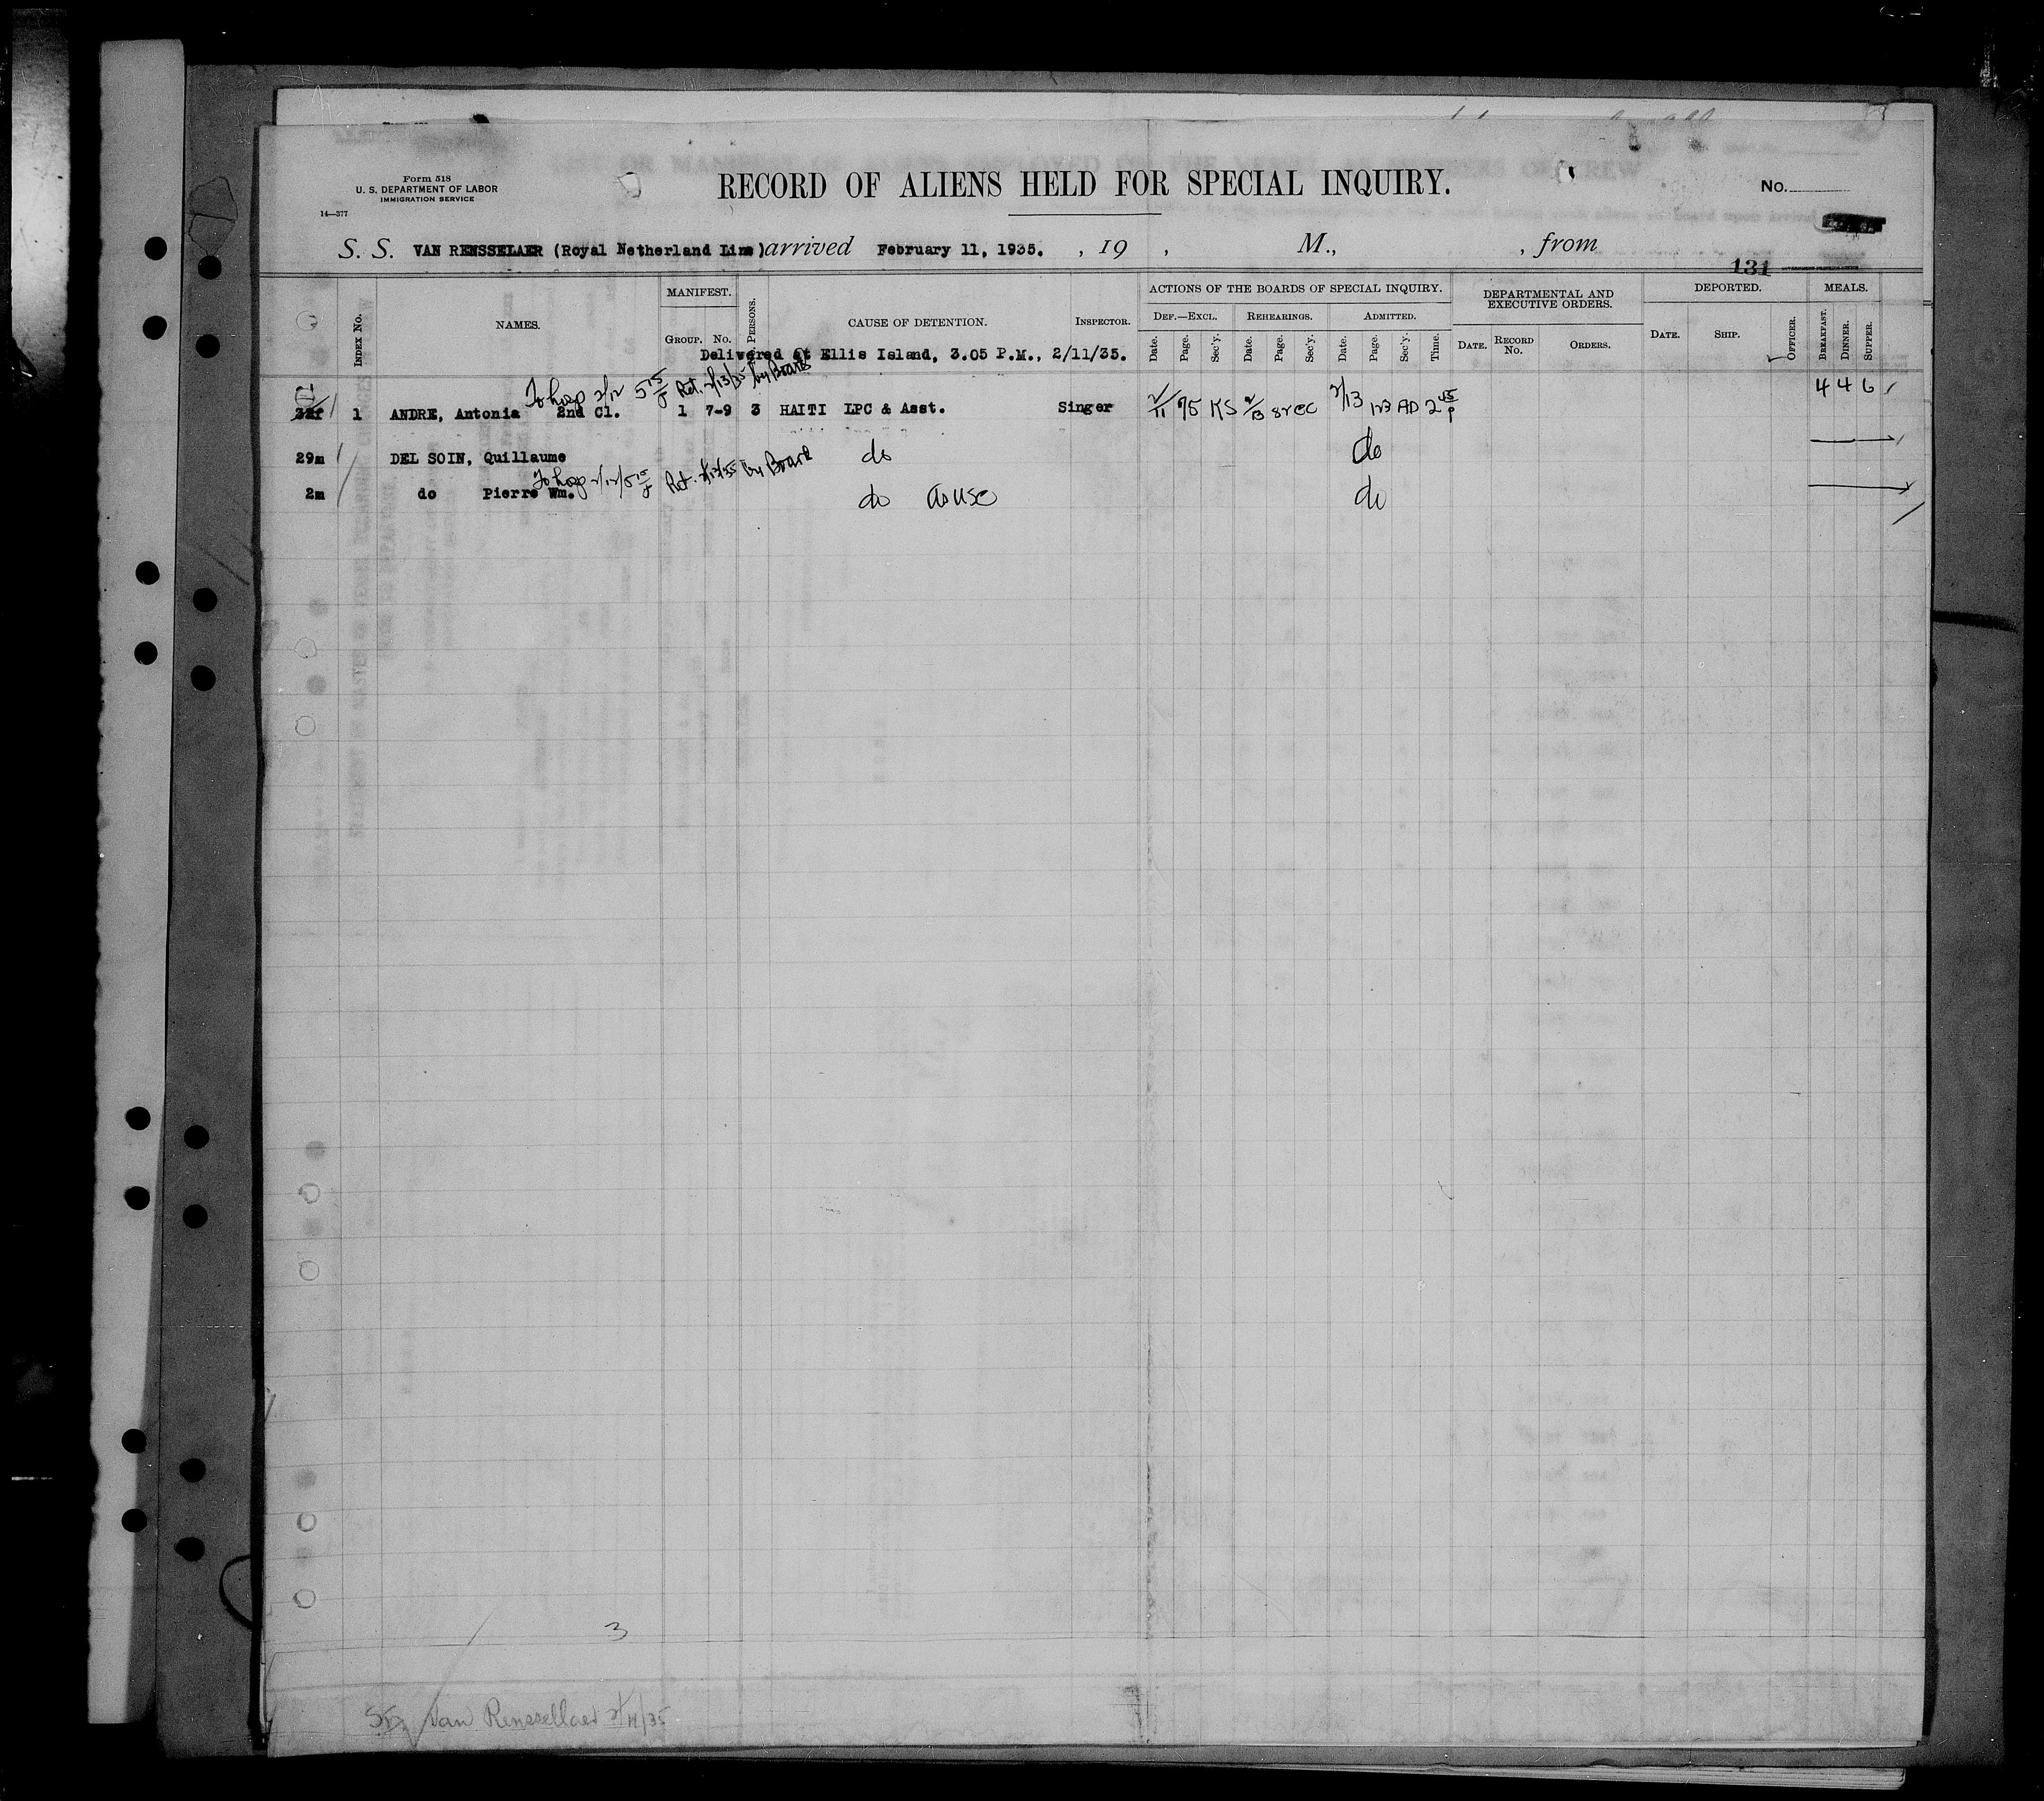 Form 518
U. S. DEPARTMENT OF LABOR
IMMIGRATION SERVICE
14—377
RECORD OF ALIENS HELD FOR SPECIAL INQUIRY.
No.
S. S. VAN RENSSELAER (Royal Netherland Line) arrived February 11, 1935. , 19 , M., , from
131
INDEX No. NAMES. MANIFEST. GROUP. No. PERSONS. CAUSE OF DETENTION. INSPECTOR. ACTIONS OF THE BOARDS OF SPECIAL INQUIRY. DEPARTMENTAL AND EXECUTIVE ORDERS. DEPORTED. MEALS.
DEF.—EXCL. REHEARINGS. ADMITTED.
Date. Page. Sec'y. Date. Page. Sec'y. Date. Page. Sec'y. Time. DATE. RECORD No. ORDERS. DATE. SHIP. OFFICER. BREAKFAST. DINNER. SUPPER.
Delivered at Ellis Island, 3.05 P.M., 2/11/35.
To hosp 2/12 5 15 Ret. 2/13/35 by Board
32f 1 ANDRE, Antonia 2nd Cl. 1 7-9 3 HAITI LPC & Asst. Singer 2/11 95 KS 2/13 82 EC 2/13 123 AD 2 45 P 4 4 6
29m DEL SOIN, Quillaume do do
To hosp 2/12/5 15 Ret. 2/13/35 by Board
2m do Pierre Wm. do do
3
Van Renssellaer 2/11/35